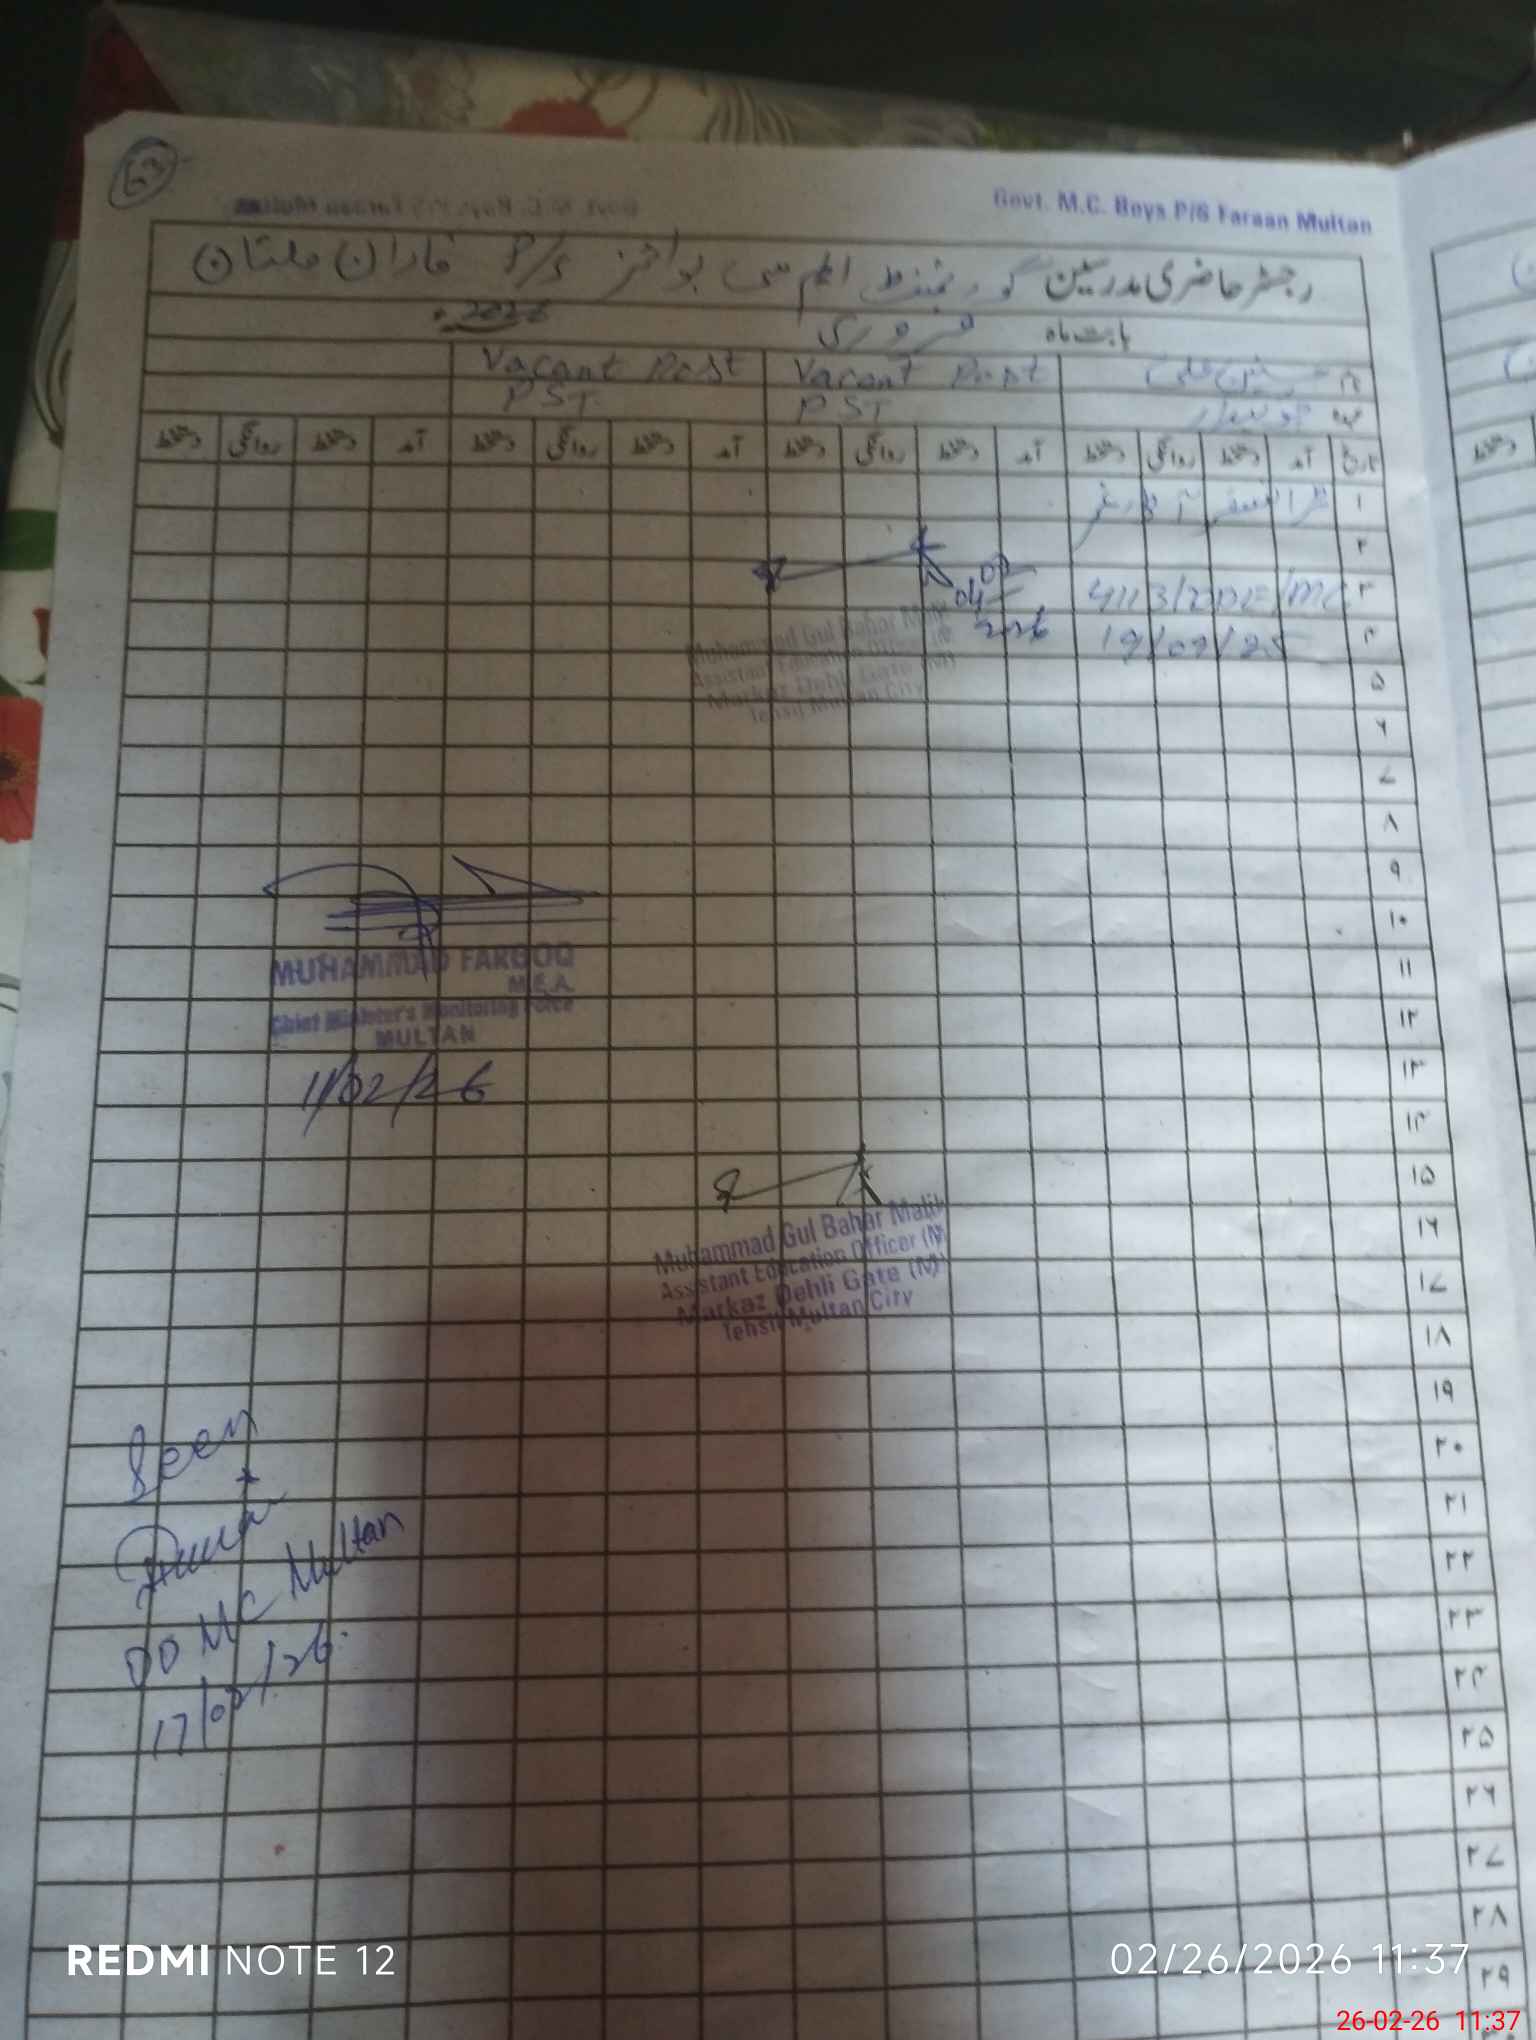 63
Govt. M.C. Boys P/S Faraan Multan
رجسٹر حاضری مدرسین گورنمنٹ ایم سی بوائز P/S فاران ملتان
بابت ماہ فروری 2026
نام Vacant Post Vacant Post
عہدہ چوکیدار PST PST
تاریخ آمد دستخط روانگی دستخط آمد دستخط روانگی دستخط آمد دستخط روانگی دستخط آمد دستخط روانگی دستخط
۱ ٹرانسفر آرڈر نمبر
۲
۳
۴
۵
۶
۷
۸
۹
۱۰
۱۱
۱۲
۱۳
۱۴
۱۵
۱۶
۱۷
۱۸
۱۹
۲۰
۲۱
۲۲
۲۳
۲۴
۲۵
۲۶
۲۷
۲۸
۲۹
Muhammad Gul Bahar Malik
Assistant Education Officer (M
Markaz Dehli Gate (M)
Tehsil Multan City
MUHAMMAD FAROOQ
M.E.A.
Chief Minister's Monitoring Force
MULTAN
11/02/26
Muhammad Gul Bahar Malik
Assistant Education Officer (M
Markaz Dehli Gate (M)
Tehsil Multan City
Seen
DO MC Multan
17/02/26.
REDMI NOTE 12
02/26/2026 11:37
26-02-26 11:37